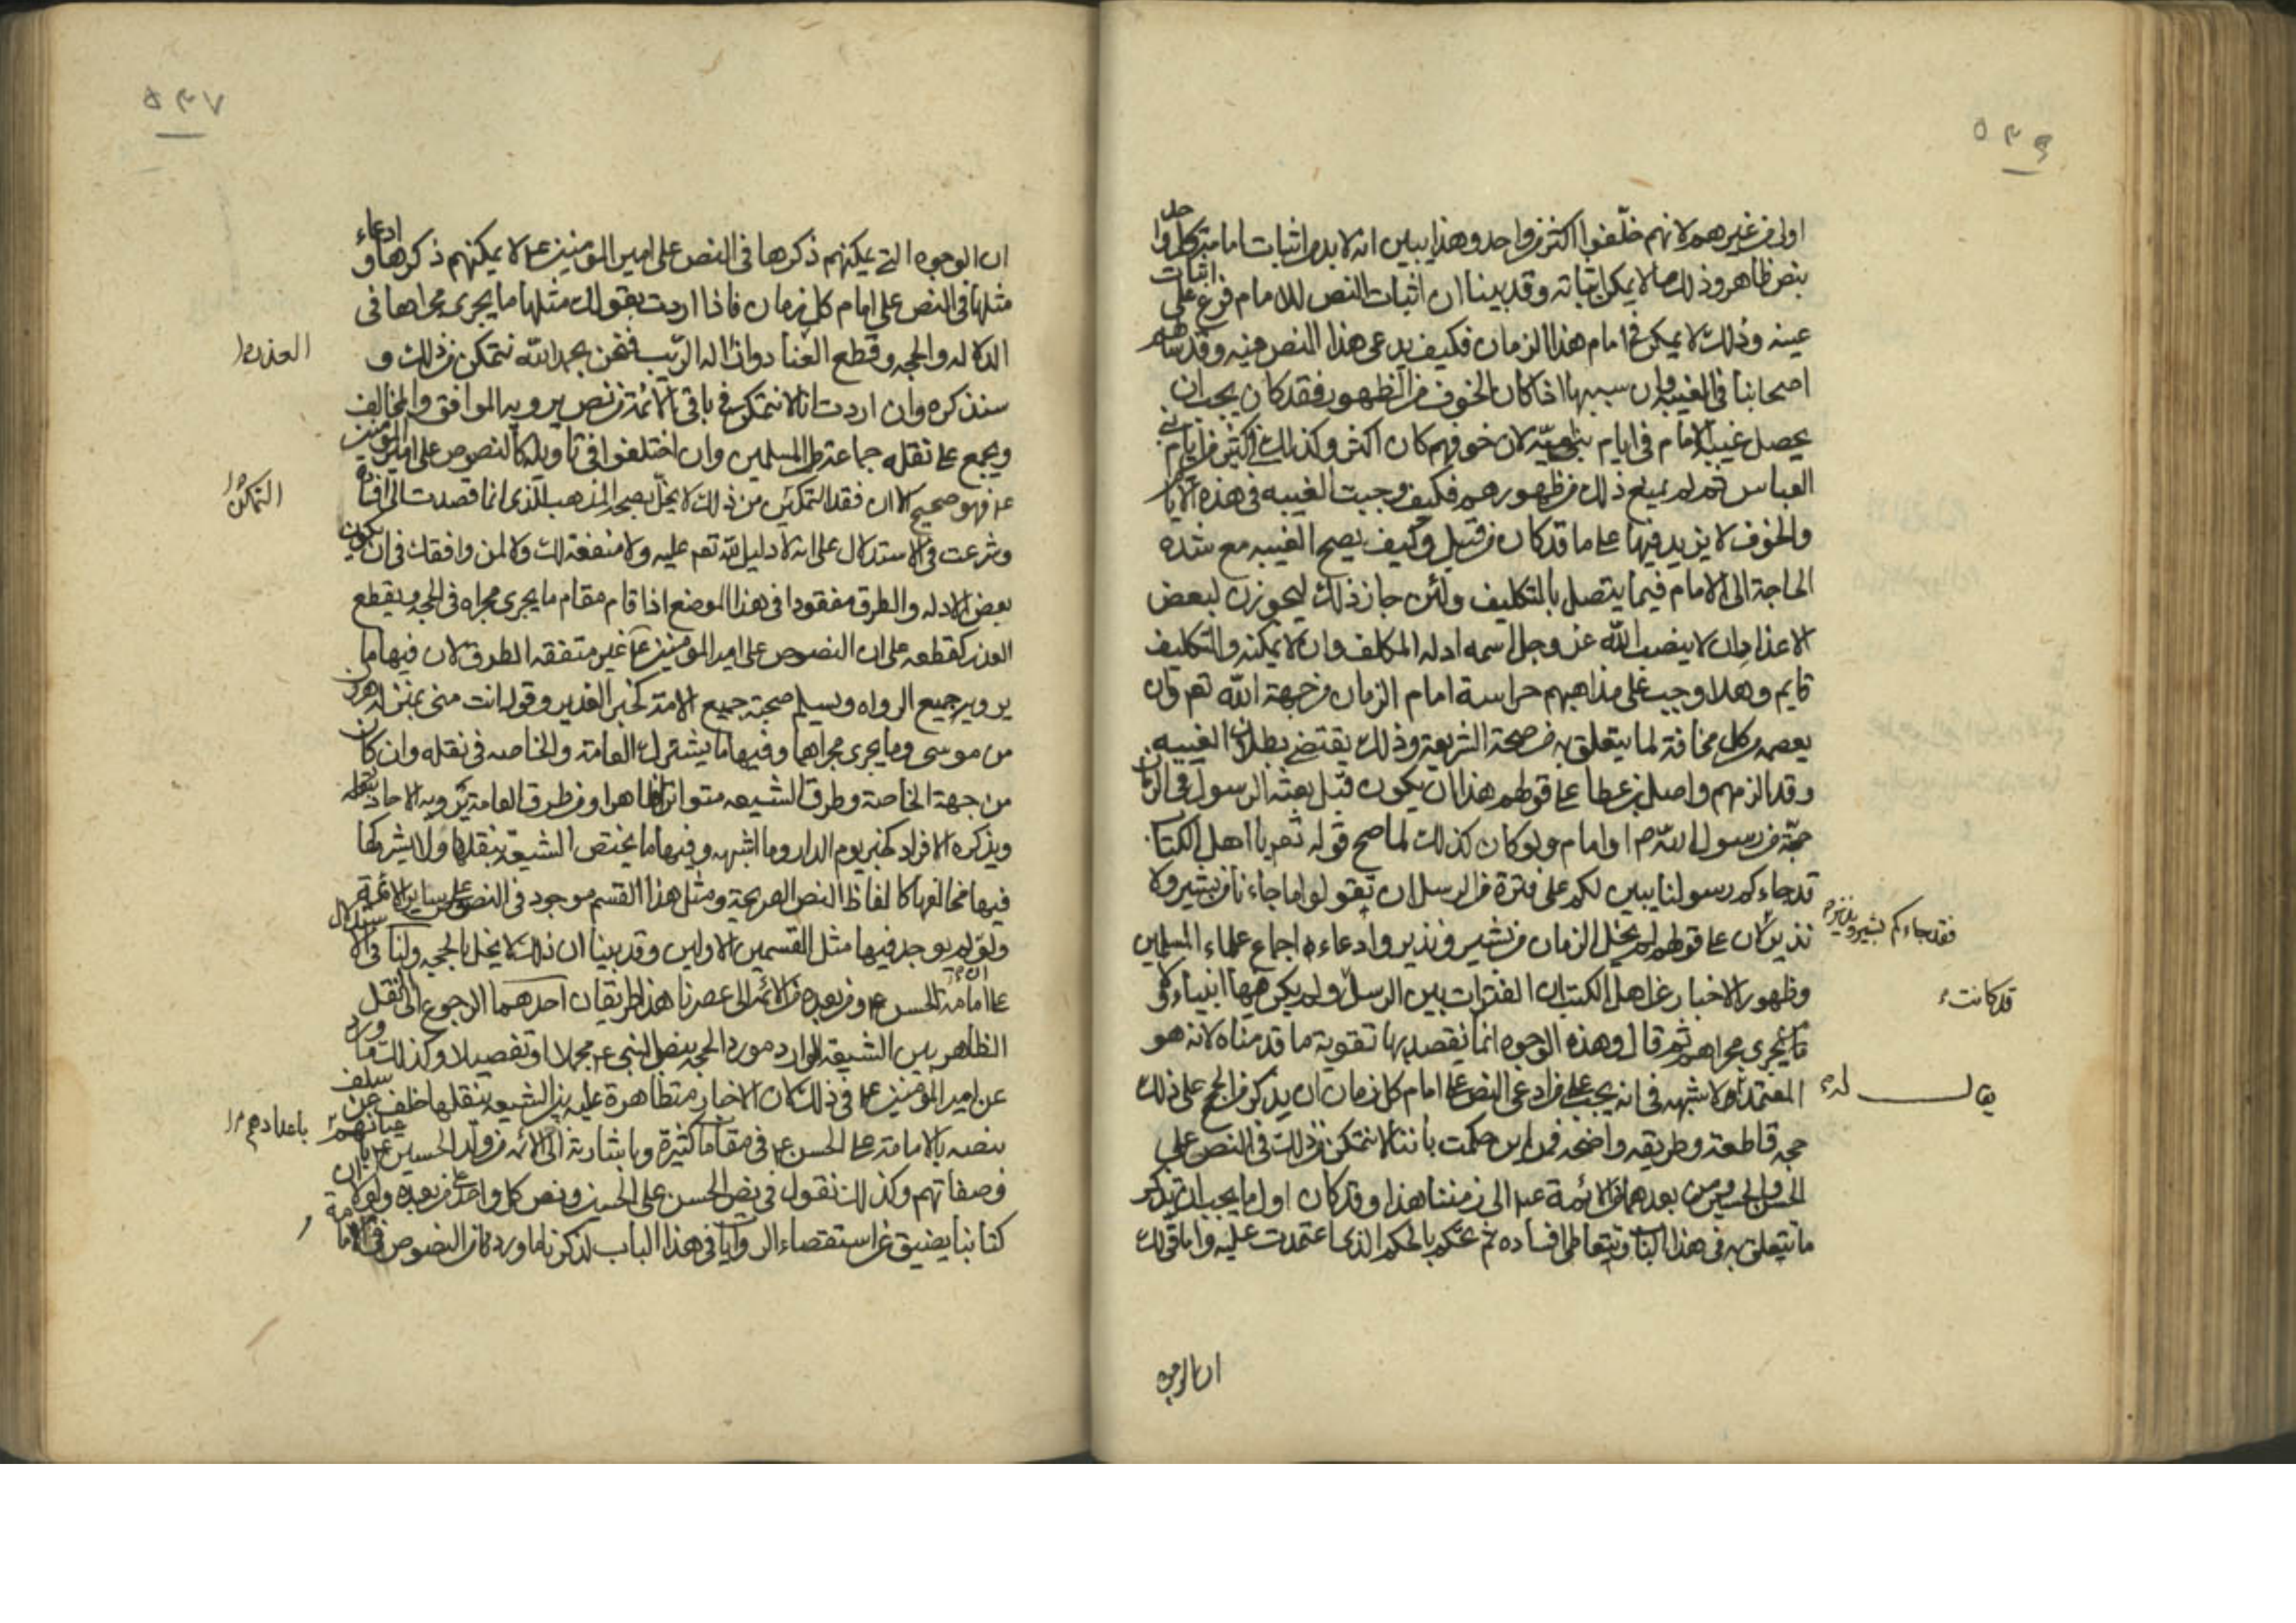 ٥٣٦
اولى من غيرهم لانهم خلّفوا اكثر من واحد وهذا يبين انه لا بد من اثبات امامة كل واحد
بنص ظاهر وذلك مما لا يمكن اثباته وقد بينا ان اثبات النص للامام فرع على اثبات
عينه وذلك لا يمكن في امام هذا الزمان فكيف يدعى هذا النص فيه وقد
اصحابنا في الغيبة وان سببها اذا كان الخوف من الظهور فقد كان يجب ان
يحصل غيبة الامام في ايام بني امية لان خوفهم كان اكثر وكذلك في اكثر من ايام بني
العباس ثم لم يمنع ذلك من ظهورهم فكيف وجبت الغيبه في هذه الايام
والخوف لا يزيد فيها على ما قد كان من قبل وكيف يصح الغيبه مع شده
الحاجة الى الامام فيما يتصل بالتكليف ولئن جاز ذلك ليجوزن لبعض
الاعذار ان لا ينصب الله عز وجل اسمه ادله المكلف وان لا يمكنه والتكليف
قايم وهلا وجب على مذاهبهم حراسة امام الزمان من جهة الله تعم وان
يعصمه من كل مخافة لما يتعلق به من صحة الشريعة وذلك يقتضي بطلان الغيبه
وقد الزمهم واصل بن عطا على قولهم هذا ان يكون قبل بعثه الرسول في الزمان
حجّة من رسول الله ص او امام ولو كان كذلك لما صح قوله تعم يا اهل الكتاب
قد جاءكم رسولنا يبين لكم على فترة من الرسل ان تقولوا ما جاءنا من بشير ولا
نذير لان على قولهم لم يخل الزمان من بشير ونذير وادعاءه اجماع علماء المسلمين
فقد جاءكم بشير ونذير
وظهور الاخبار عن اهل الكتب ان الفترات بين الرسل ولم يكن فيها انبياء ولا
قد كانت
ما يجرى مجراهم ثم قال وهذه الوجوه انما نقصد بها تقوية ما قدمناه لانه هو
المعتمد ولا شبهه في انه يجب على من ادعى النص على امام كل زمان ان يذكر من الحجج على ذلك
يقال له
حجه قاطعة وطريقه واضحه فمن اين حكمت باننا لا نتمكن من ذلك في النص على
الحسن والحسين ومن بعدهما من الائمة عم الى زمننا هذا وقد كان اولى ما يجب ان تذكر
ما نتعلق به في هذا الباب وتتعاطى افساده ثم تحكم بالحكم الذى اعتمدت عليه واما قولك
ان الوجوه
٥٣٧
ان الوجوه التي يمكنهم ذكرها في النص على امير المومنين عم لا يمكنهم ذكرها و ادعاء
مثلها في النص على امام كل زمان فاذا اردت بقولك مثلها ما يجرى مجراها في
الدلاله والحجه وقطع العناد وازاله الريب فنحن بحمد الله نتمكن من ذلك و
العذر
سنذكره وان اردت انا لا نتمكن في باقي الائمة من نص يرويه الموافق والمخالف
ويجمع على نقله جماعة من المسلمين وان اختلفوا في تاويله كالنصوص على امير المومنين
عم فهو صحيح الا ان فقد التمكن من ذلك لا يخل بصحه المذهب الذى انما قصدت الى افساده
التمكن
وشرعت في الاستدلال على انه لا دليل لله تعم عليه ولا منفعة لك ولا لمن وافقك في ان يكون
بعض الادله والطرق مفقودا في هذا الموضع اذا قام مقام ما يجرى مجراه في الحجه ويقطع
العذر كقطعه على ان النصوص على امير المؤمنين عم غير متفقه الطرق لان فيها ما
يرويه جميع الرواه ويسلم صحته جميع الامة كخبر الغدير وقوله انت منى بمنزلة هرون
من موسى وما يجرى مجراهما وفيها ما يشترك العامة والخاصه في نقله وان كان
من جهة الخاصة وطرق الشيعه متواترا ظاهرا ومن طرق العامة يرويه الاحاد بنقله
ويذكره الافراد كخبر يوم الدار وما اشبهه وفيها ما يختص الشيعة بنقلها ولا يشركها
فيها مخالفها كالفاظ النص الصريحة ومثل هذا القسم موجود في النصوص على ساير الائمة
ولو لم يوجد فيها مثل القسمين الاولين وقد بينا ان ذلك لا يخل بالحجه ولنا في الاستدلال
على امامة الحسن عم ومن بعده من الائمه الى عصرنا هذا طريقان احدهما الرجوع الى النقل
الظاهر بين الشيعة الوارد مورد الحجه بنص النبى عم مجملا او تفصيلا وكذلك ما ورد
عن امير المؤمنين عم في ذلك لان الاخبار متظاهرة عليه بين الشيعه ينقلها خلف عن سلف
بنصه بالامامة على الحسن عم في مقامات كثيرة وباشارته الى الائمه من ولد الحسين عم باعيانهم
باعدادهم
وصفاتهم وكذلك نقول في نص الحسن على الحسين ونص كل واحد على من بعده ولولا ان
كتابنا يضيق عن استقصاء الروايات في هذا الباب لذكرنا ما ورد من النصوص في الامامة